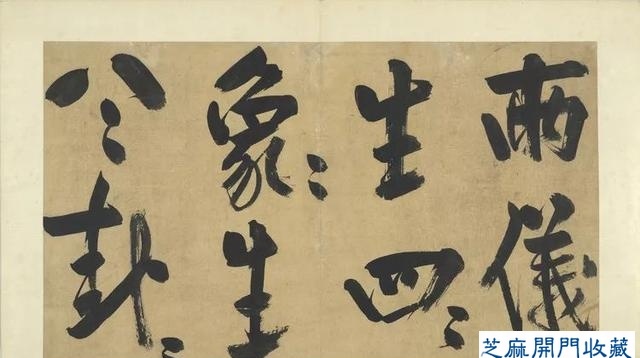 兩儀
生四〻
象〻生
八〻卦〻
芝麻開門收藏